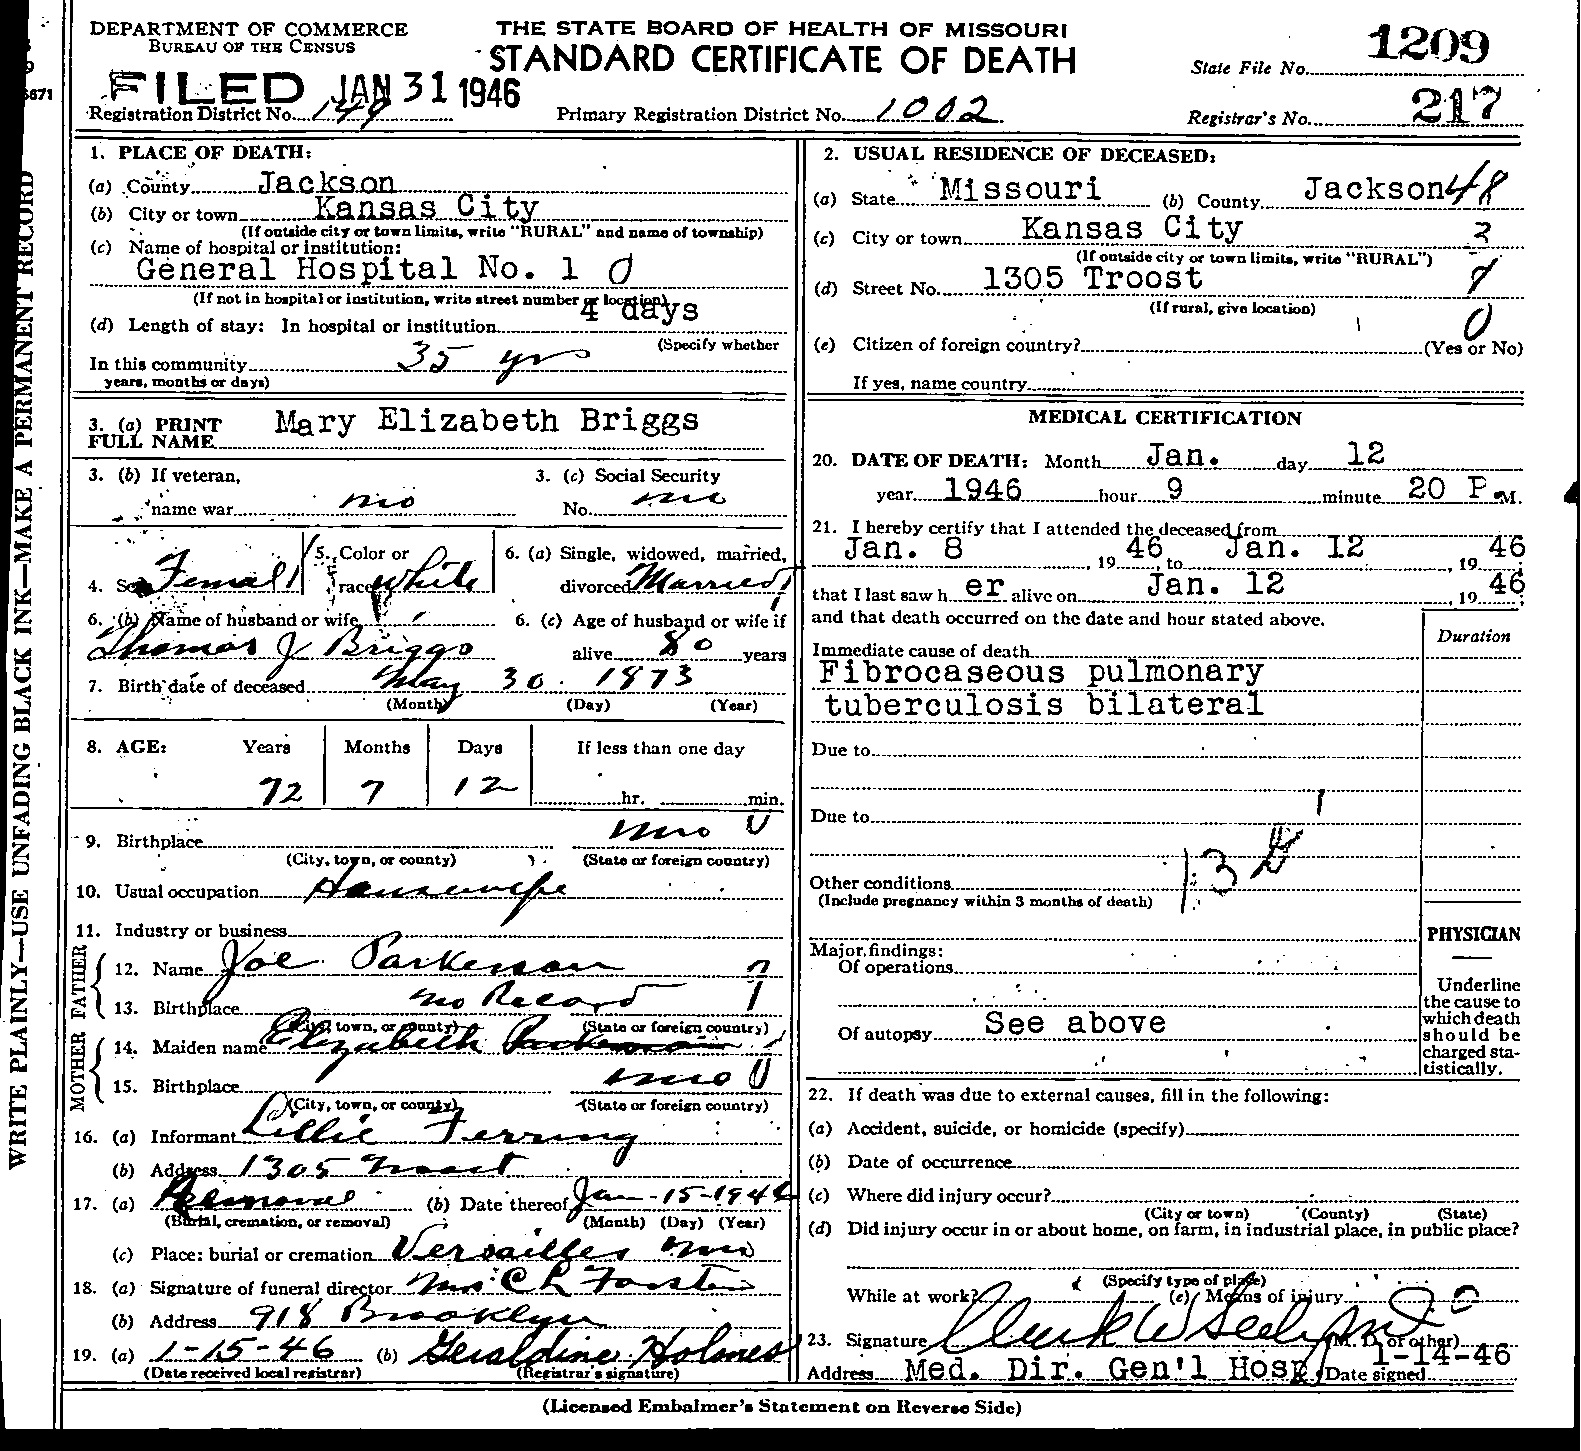 DEPARTMENT OF COMMERCE
BUREAU OF THE CENSUS
THE STATE BOARD OF HEALTH OF MISSOURI
STANDARD CERTIFICATE OF DEATH
State File No. 1209
FILED JAN 31 1946
Registration District No. 149
Primary Registration District No. 1002
Registrar's No. 217
WRITE PLAINLY—USE UNFADING BLACK INK—MAKE A PERMANENT RECORD
1. PLACE OF DEATH:
(a) County Jackson
(b) City or town Kansas City
(If outside city or town limits, write "RURAL" and name of township)
(c) Name of hospital or institution:
General Hospital No. 1 0
(If not in hospital or institution, write street number or location)
(d) Length of stay: In hospital or institution 4 days
(Specify whether
In this community 35 yrs
years, months or days)
2. USUAL RESIDENCE OF DECEASED:
(a) State Missouri (b) County Jackson 48
(c) City or town Kansas City 3
(If outside city or town limits, write "RURAL")
(d) Street No. 1305 Troost
(If rural, give location)
0
(e) Citizen of foreign country? (Yes or No)
If yes, name country
3. (a) PRINT FULL NAME Mary Elizabeth Briggs
3. (b) If veteran, name war no
3. (c) Social Security No. no
4. Sex Female 1
5. Color or race White
6. (a) Single, widowed, married, divorced Married
6. (b) Name of husband or wife
Thomas J Briggs
6. (c) Age of husband or wife if alive 80 years
7. Birth date of deceased May 30 1873
(Month) (Day) (Year)
8. AGE: Years Months Days If less than one day
72 7 12 hr. min.
9. Birthplace Mo 0
(City, town, or county) (State or foreign country)
10. Usual occupation Housewife
11. Industry or business
FATHER
12. Name Joe Parkerson
13. Birthplace no Record
(City, town, or county) (State or foreign country)
MOTHER
14. Maiden name Elizabeth
15. Birthplace Mo 0
(City, town, or county) (State or foreign country)
16. (a) Informant Lillie Ferring
(b) Address 1305 Troost
17. (a) Removal (b) Date thereof Jan-15-1946
(Burial, cremation, or removal) (Month) (Day) (Year)
(c) Place: burial or cremation Versailles Mo
18. (a) Signature of funeral director Mrs C L Forster
(b) Address 918 Brooklyn
19. (a) 1-15-46 (b) Geraldine Holmes
(Date received local registrar) (Registrar's signature)
MEDICAL CERTIFICATION
20. DATE OF DEATH: Month Jan. day 12
year 1946 hour 9 minute 20 P.M.
21. I hereby certify that I attended the deceased from
Jan. 8, 19 46 to Jan. 12, 19 46
that I last saw h er alive on Jan. 12, 19 46
and that death occurred on the date and hour stated above.
Duration
Immediate cause of death
Fibrocaseous pulmonary
tuberculosis bilateral
Due to
Due to
Other conditions 13
(Include pregnancy within 3 months of death)
Major findings:
Of operations
Of autopsy See above
PHYSICIAN
Underline
the cause to
which death
should be
charged sta-
tistically.
22. If death was due to external causes, fill in the following:
(a) Accident, suicide, or homicide (specify)
(b) Date of occurrence
(c) Where did injury occur?
(City or town) (County) (State)
(d) Did injury occur in or about home, on farm, in industrial place, in public place?
(Specify type of place)
While at work? (e) Means of injury
23. Signature Clark W Seely MD (M. D. or other)
Address Med. Dir. Gen'l Hosp. Date signed 1-14-46
(Licensed Embalmer's Statement on Reverse Side)